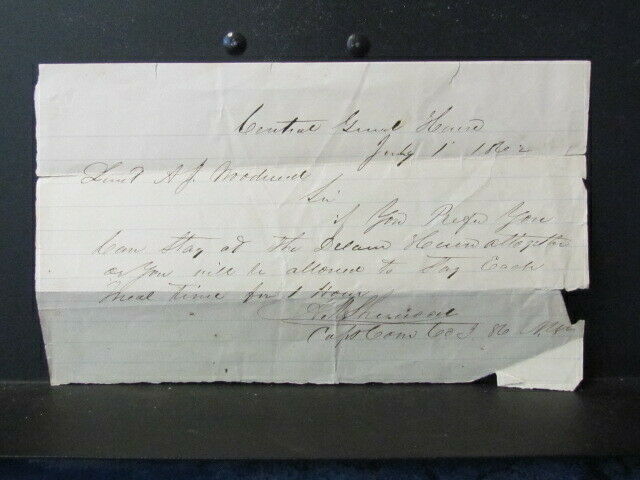 Central Guard House
July 1st 1862
Lieut A. J. Woodend
Sir
if You Prefer You
Can Stay at the House altogether
or You will be allowed to Stay Each
Meal time for 1 Hour
Capt Com Co I. 86